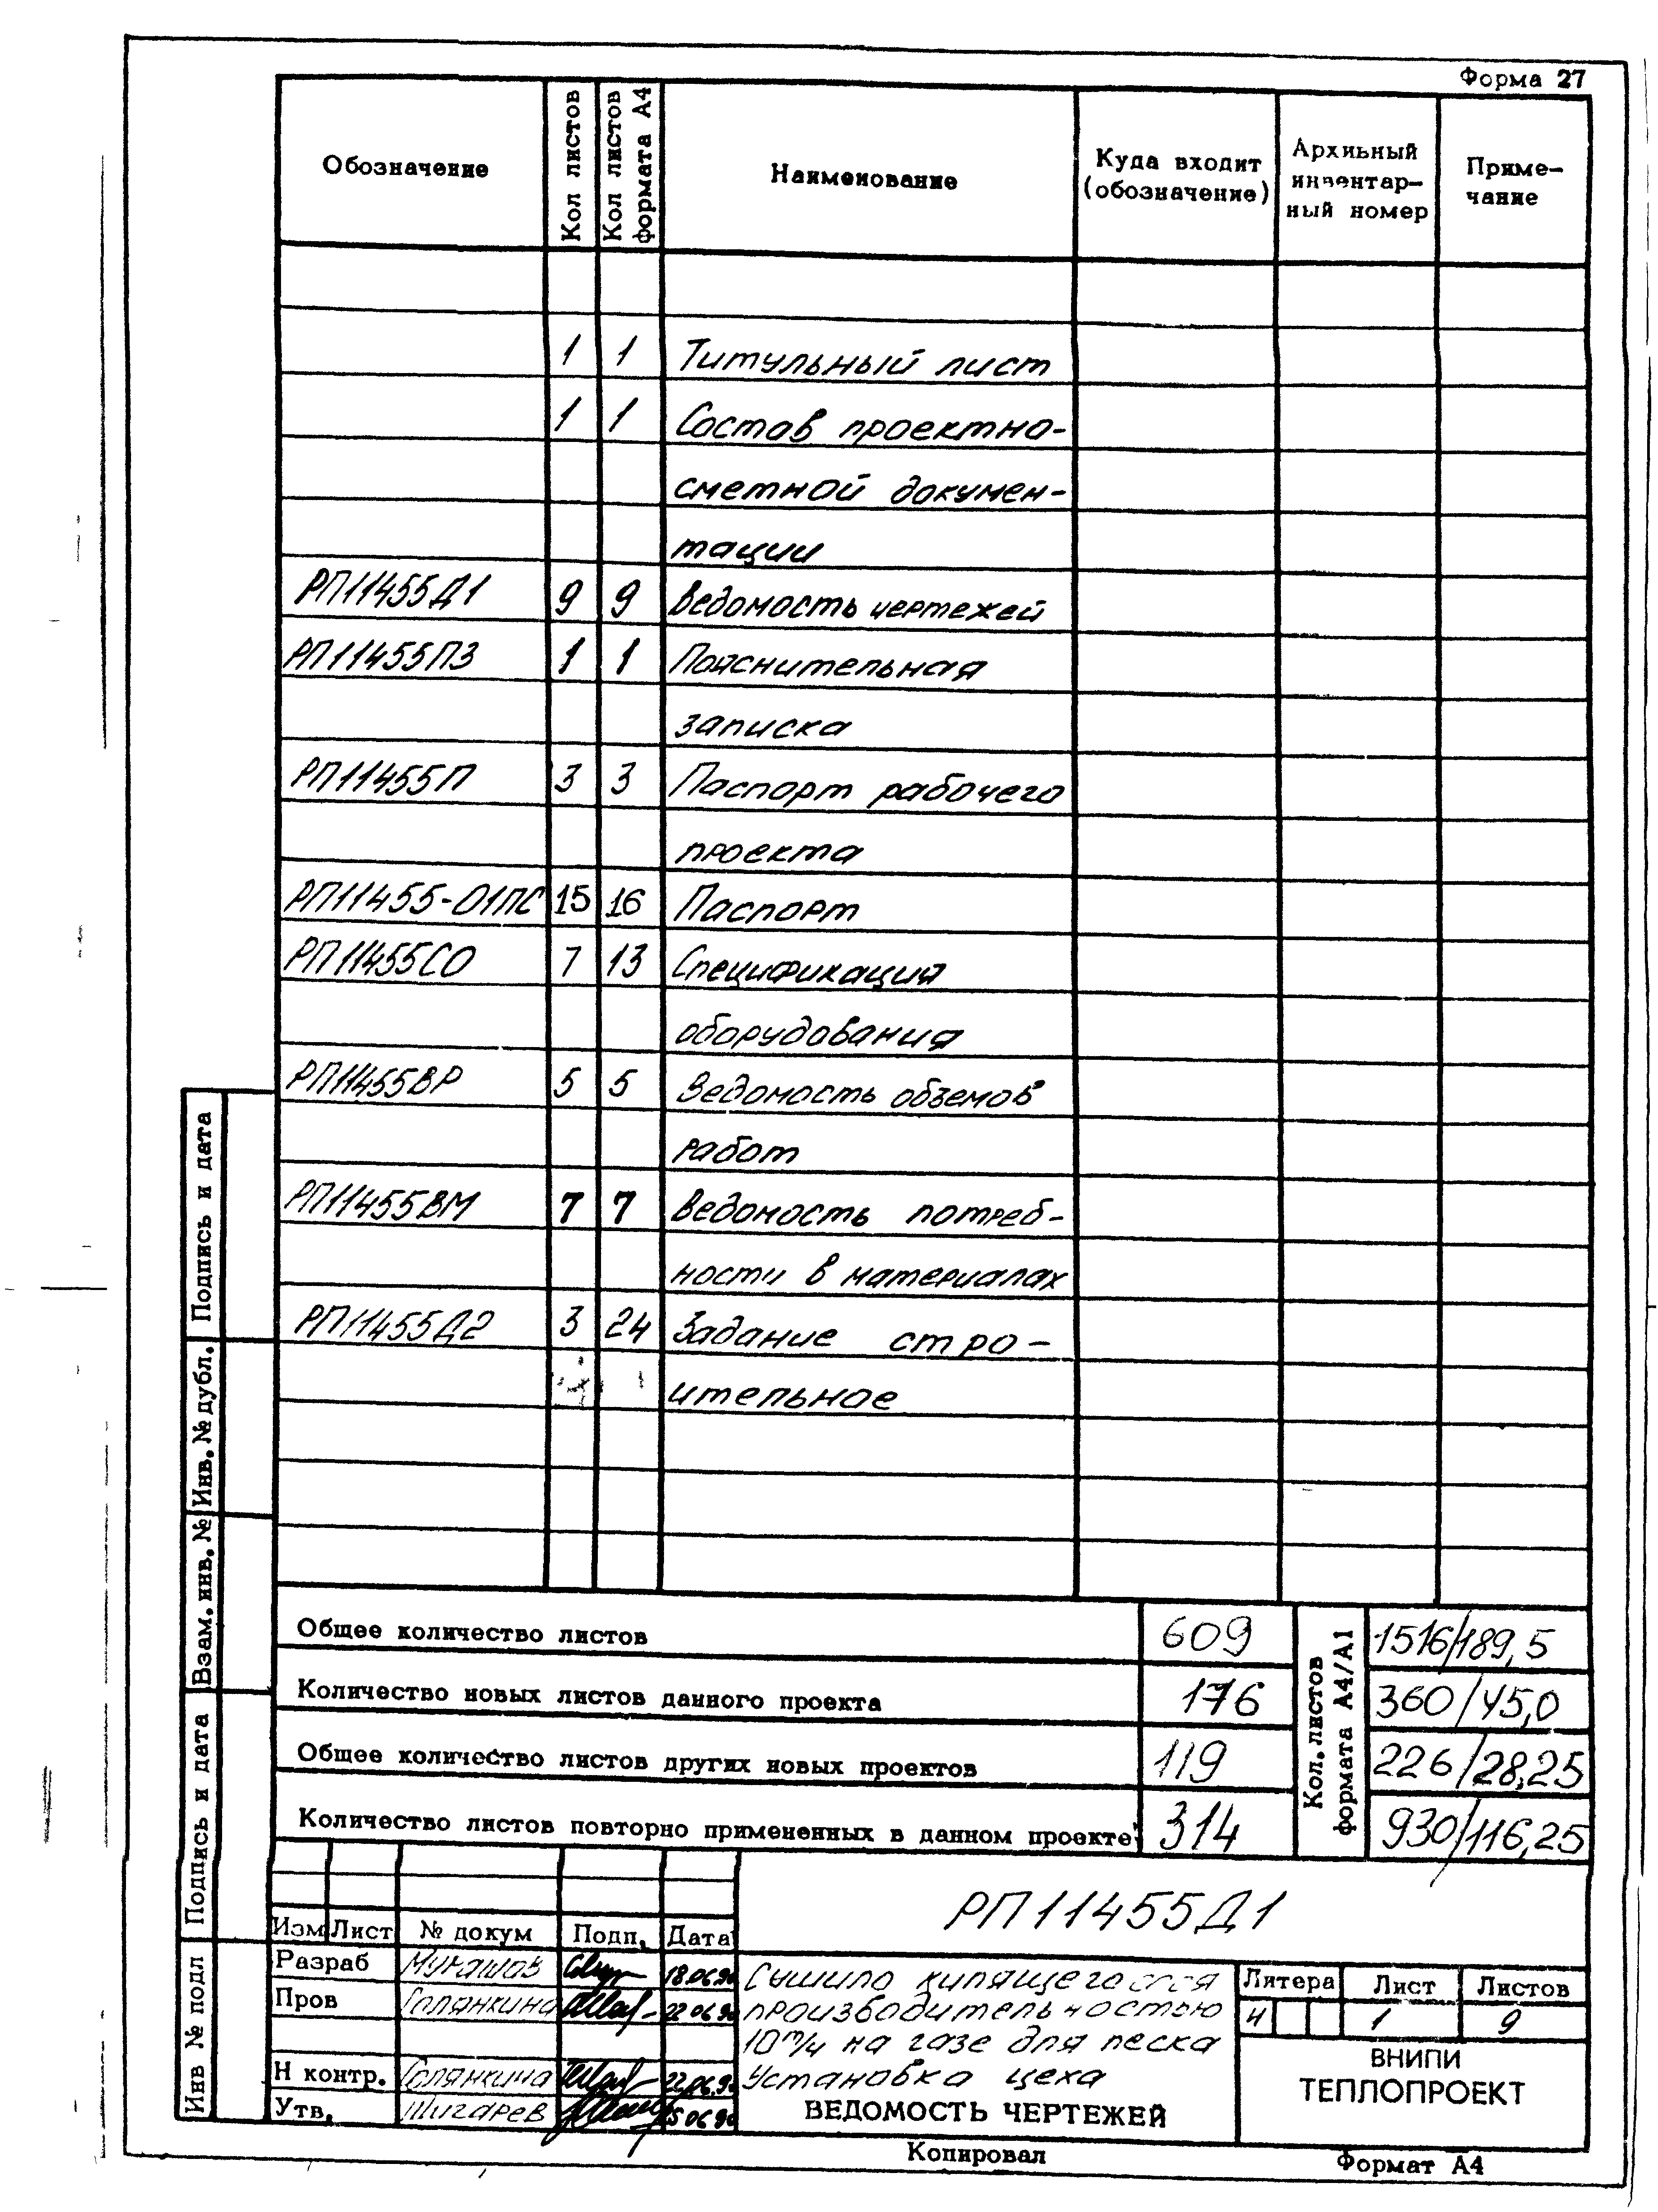 Форма 27
Обозначение | Кол листов | Кол листов формата А4 | Наименование | Куда входит (обозначение) | Архивный инвентар- ный номер | Приме- чание
1 1 Титульный лист
1 1 Состав проектно-
сметной докумен-
тации
РП11455Д1 9 9 Ведомость чертежей
РП11455ПЗ 1 1 Пояснительная
записка
РП11455П 3 3 Паспорт рабочего
проекта
РП11455-01ПС 15 16 Паспорт
РП11455СО 7 13 Спецификация
оборудования
РП11455ВР 5 5 Ведомость объемов
работ
РП11455ВМ 7 7 Ведомость потреб-
ности в материалах
РП11455Д2 3 24 Задание стро-
ительное
Общее количество листов 609 1516/189,5
Количество новых листов данного проекта 176 360/45,0
Общее количество листов других новых проектов 119 226/28,25
Количество листов повторно примененных в данном проекте 314 930/116,25
Кол.листов
формата А4/А1
РП11455Д1
Изм Лист № докум Подп. Дата
Разраб 18.06.90
Пров Голянкина 22.06.90
Н контр. Голянкина 22.06.90
Утв. Шигарев 06.90
Сушило кипящего слоя
производительностью
10 т/ч на газе для песка
Установка цеха
ВЕДОМОСТЬ ЧЕРТЕЖЕЙ
Литера Лист Листов
Ч 1 9
ВНИПИ
ТЕПЛОПРОЕКТ
Копировал
Формат А4
Подпись и дата
Инв. № дубл.
Взам. инв. №
Подпись и дата
Инв № подл